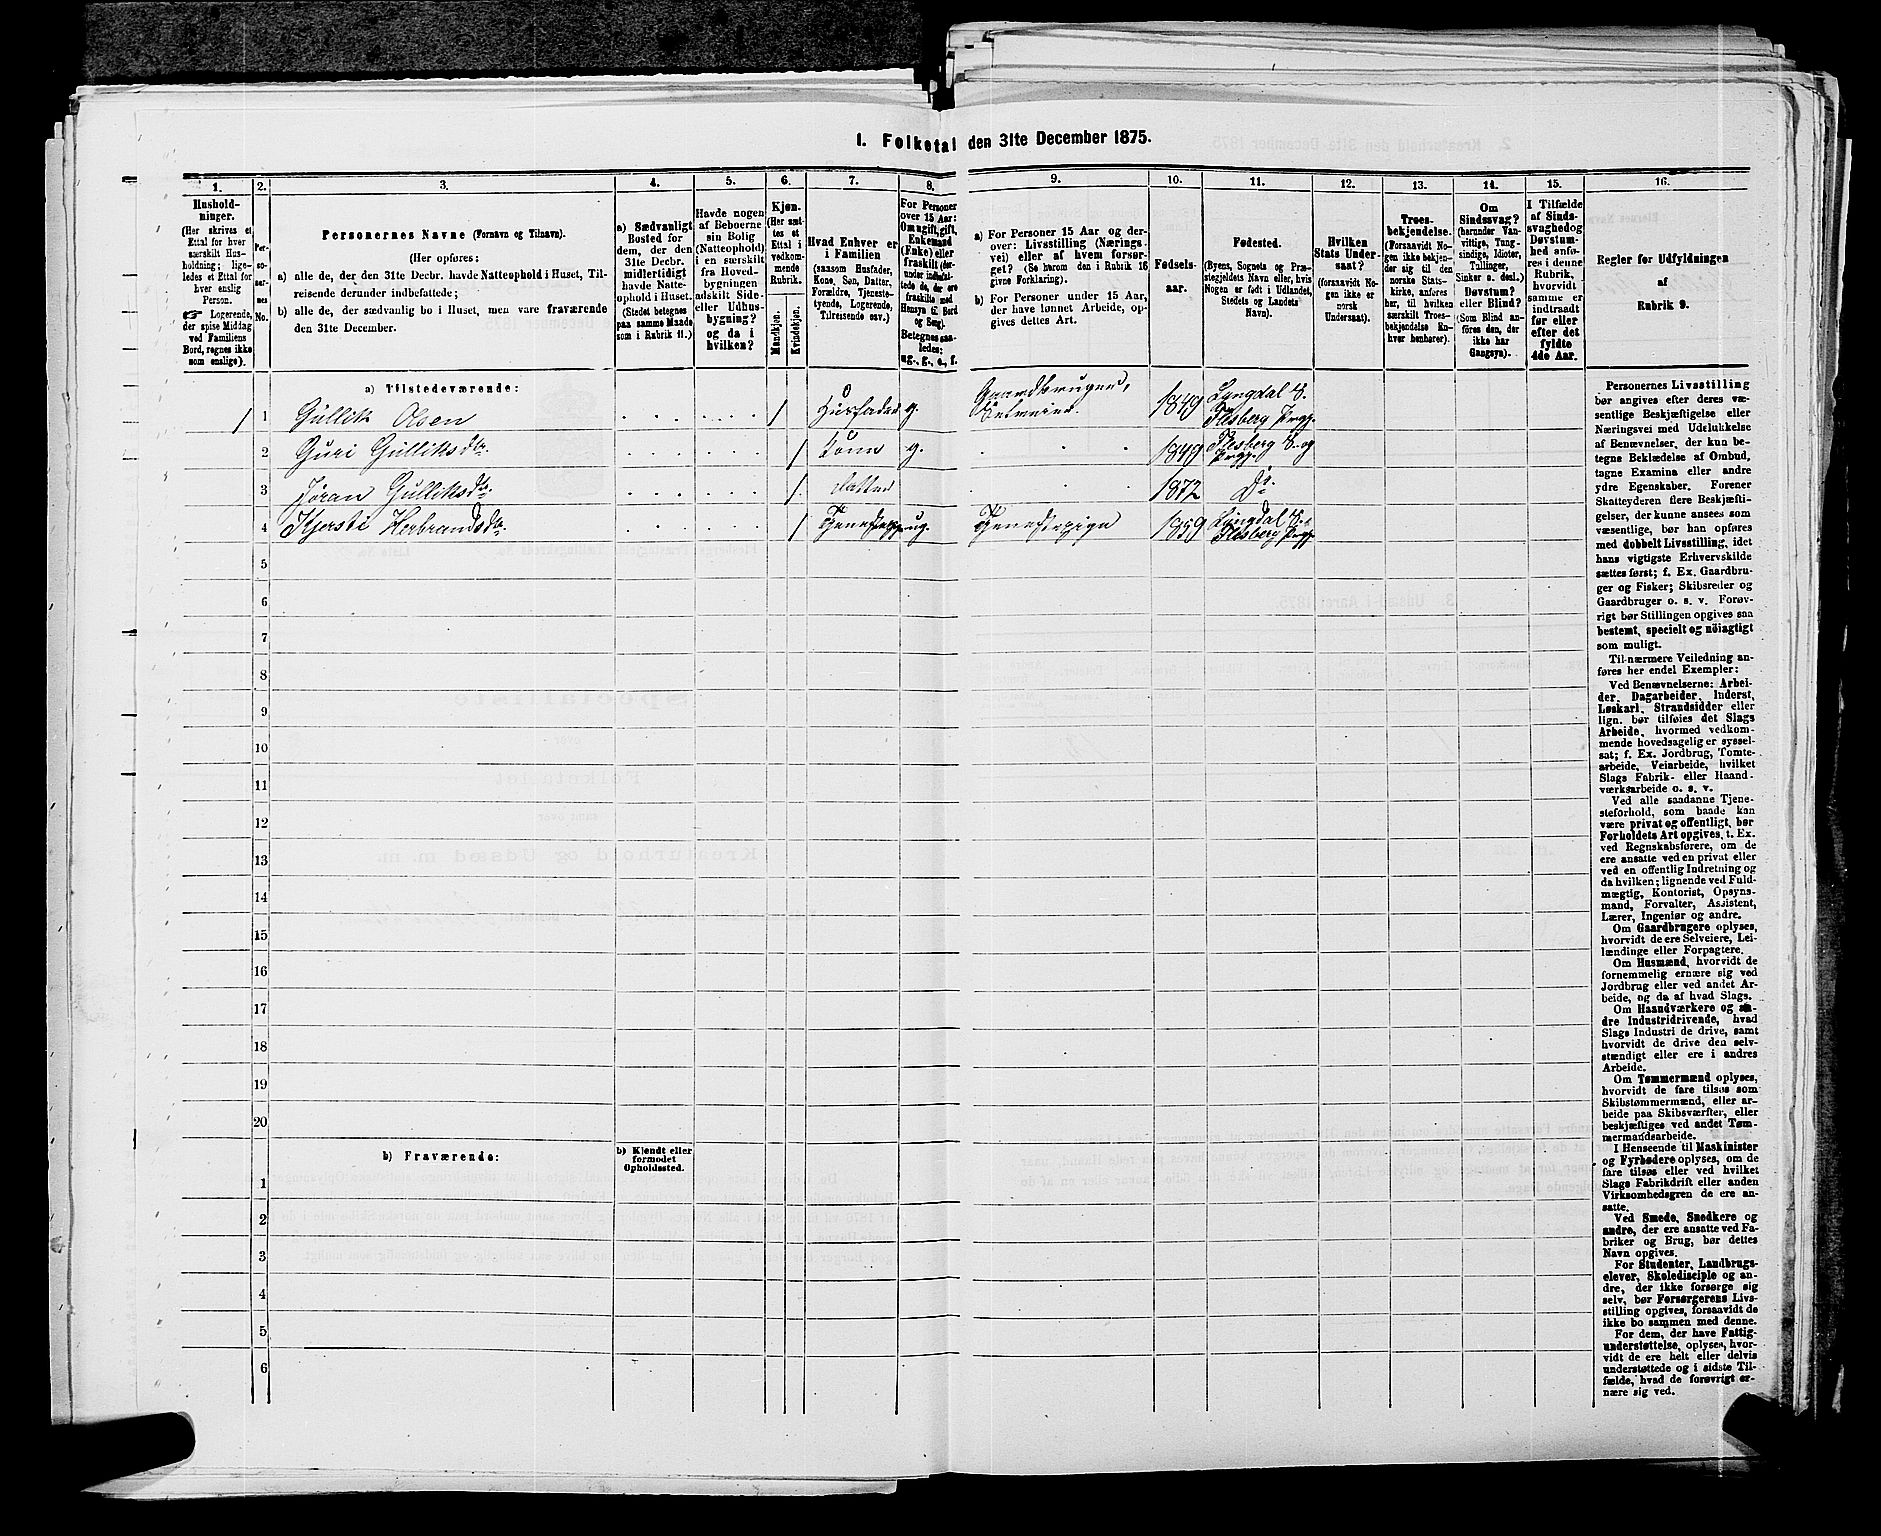 1. Folketal den 31te December 1875.
1.
2.
3.
4.
5.
6.
7.
8.
9.
10.
11.
12.
13.
14.
15.
16.
Hushold-
ninger.
(Her skrives et
Ettal for hver
særskilt Hus-
holdning; lige-
ledes et Ettal for
hver enslig
Person.
☞ Logerende,
der spise Middag
ved Familiens
Bord, regnes ikke
som enslige).
Per-
so-
ner-
nes
No.
Personernes Navne (Fornavn og Tilnavn).
(Her opføres:
a) alle de, der den 31te Decbr. havde Natteophold i Huset, Til-
reisende derunder indbefattede;
b) alle de, der sædvanlig bo i Huset, men vare fraværende
den 31te December.
a) Sædvanligt
Bosted for
dem, der den
31te Decbr.
midlertidigt
havde Natte-
ophold i Huset.
(Stedet betegnes
paa samme Maade
som i Rubrik 11.)
Havde nogen
af Beboerne
sin Bolig
(Natteophold)
i en særskilt
fra Hoved-
bygningen
adskilt Side-
eller Udhus-
bygning?
og da i
hvilken?
Kjøn.
(Her sæt-
tes et
Ettal i
vedkom-
mende
Rubrik.
Mandkjøn.
Kvindekjøn.
Hvad Enhver er
i Familien
(saasom Husfader,
Kone, Søn, Datter,
Forældre, Tjeneste-
tyende, Logerende,
Tilreisende osv.)
For Personer
over 15 Aar:
Om ugift, gift,
Enkemand
(Enke) eller
fraskilt (der-
under indbefat-
tede de, der ere
fraskilte med
Hensyn til Bord
og Seng).
Betegnes saa-
ledes:
ug., g., e., f.
a) For Personer 15 Aar og der-
over: Livsstilling (Nærings-
vei) eller af hvem forsør-
get? (Se herom den i Rubrik 16
givne Forklaring).
b) For Personer under 15 Aar,
der have lønnet Arbeide, op-
gives dettes Art.
Fødsels-
aar.
Fødested.
(Byens, Sognets og Præ-
stegjeldets Navn eller, hvis
Nogen er født i Udlandet,
Stedets og Landets
Navn).
Hvilken
Stats Under-
saat?
(foraavidt No-
gen ikke er
norsk
Undersaat).
Troes-
bekjendelse.
(Forsaavidt No-
gen ikke bekjen-
der sig til den
norske Stats-
kirke, anføres
her, til hvilken
særskilt Troes-
bekjendelse En-
hver henhører).
Om
Sindssvag?
(herunder Van-
vittige, Tung-
sindige, Idioter,
Tullinger,
Sinker o. desl.)
Døvstum?
eller Blind?
(Som Blind an-
føres den, der
ikke har
Gangsyn).
I Tilfælde
af Sinds-
svaghed og
Døvstum-
hed anfø-
res i denne
Rubrik,
hvorvidt
samme er
indtraadt
før eller
efter det
fyldte
4de Aar.
Regler for Udfyldningen
af
Rubrik 9.
a) Tilstedeværende:
1 1 Gullik Olsen 1 Husfader g. Gaardbruger, Selveier. 1849 Lyngdal S. Flesberg Prgj.
2 Guri Gulliksdtr. 1 Kone g. 1849 Flesberg S. og Prgj.
3 Jøran Gulliksdtr. 1 datter 1872 Do
4 Kjersti Herbrandsdtr. 1 ug. Tjenestepige 1859 Lyngdal S. Flesberg Prgj.
5
6
7
8
9
10
11
12
13
14
15
16
17
18
19
20
b) Fraværende:
b) Kjendt eller
formodet
Opholdssted.
1
2
3
4
5
6
Personernes Livsstilling
bør angives efter deres væ-
sentlige Beskjæftigelse eller
Næringsvei med Udelukkelse
af Benævnelser, der kun be-
tegne Beklædelse af Ombud,
tagne Examina eller andre
ydre Egenskaber. Forener
Skatteyderen flere Beskjæfti-
gelser, der kunne ansees som
væsentlige, bør han opføres
med dobbelt Livsstilling, idet
hans vigtigste Erhvervskilde
sættes først; f. Ex. Gaardbru-
ger og Fisker; Skibsreder og
Gaardbruger o. s. v. Forøv-
rigt bør Stillingen opgives saa
bestemt, specielt og nøiagtigt
som muligt.
Til nærmere Veiledning an-
føres her endel Exempler:
Ved Benævnelserne: Arbei-
der, Dagarbeider, Inderst,
Løskarl, Strandsidder eller
lign. bør tilføies det Slags
Arbeide, hvormed vedkom-
mende hovedsagelig er syssel-
sat; f. Ex. Jordbrug, Tomte-
arbeide, Veiarbeide, hvilket
Slags Fabrik- eller Haand-
værksarbeide o. s. v.
Ved alle saadanne Tjene-
steforhold, som baade kan
være privat og offentligt, bør
Forholdets Art opgives, t. Ex.
ved Regnskabsførere, om de
ere ansatte ved en privat eller
ved en offentlig Indretning og
da hvilken; lignende ved Fuld-
mægtig, Kontorist, Opsyns-
mand, Forvalter, Assistent,
Lærer, Ingeniør og andre.
Om Gaardbrugere oplyses,
hvorvidt de ere Selveiere, Lei-
lændinge eller Forpagtere.
Om Husmænd, hvorvidt de
fornemmelig ernære sig ved
Jordbrug eller ved andet Ar-
beide, og da af hvad Slags.
Om Haandværkere og an-
dre Industridrivende, hvad
Slags Industri de drive, samt
hvorvidt de drive den selv-
stændigt eller ere i andres
Arbeide.
Om Tømmermænd oplyses,
hvorvidt de fare tilsøs som
Skibstømmermænd, eller ar-
beide paa Skibsværfter, eller
beskjæftiges ved andet Tøm-
mermandsarbeide.
I Henseende til Maskinister
og Fyrbødere oplyses, om de
fare tilsøs eller ved hvilket
Slags Fabrikdrift eller anden
Virksomhedsgren de ere an-
satte.
Ved Smede, Snedkere og
andre, der ere ansatte ved Fa-
briker og Brug, bør dettes
Navn opgives.
For Studenter, Landbrugs-
elever, Skoledisciple og an-
dre, der ikke forsørge sig
selv, bør Forsørgerens Livs-
stilling opgives, forsaavidt de
ikke bo sammen med denne.
For dem, der have Fattig-
understøttelse, oplyses, hvor-
vidt de ere helt eller delvis
understøttede og i sidste Til-
fælde, hvad de forøvrigt er-
nære sig ved.